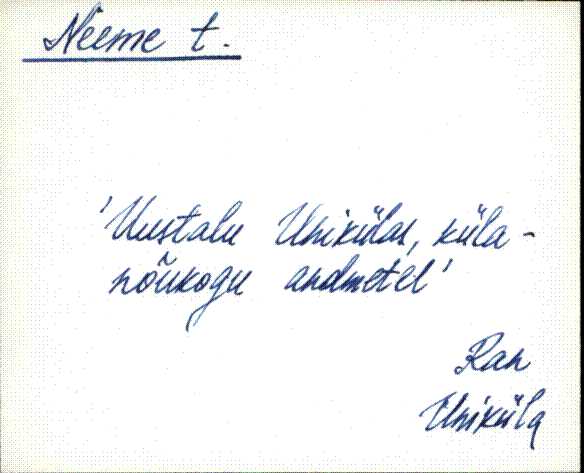 Neeme t.
'Uustalu Unikülas, küla-
nõukogu andmetel'
Ran
Uniküla